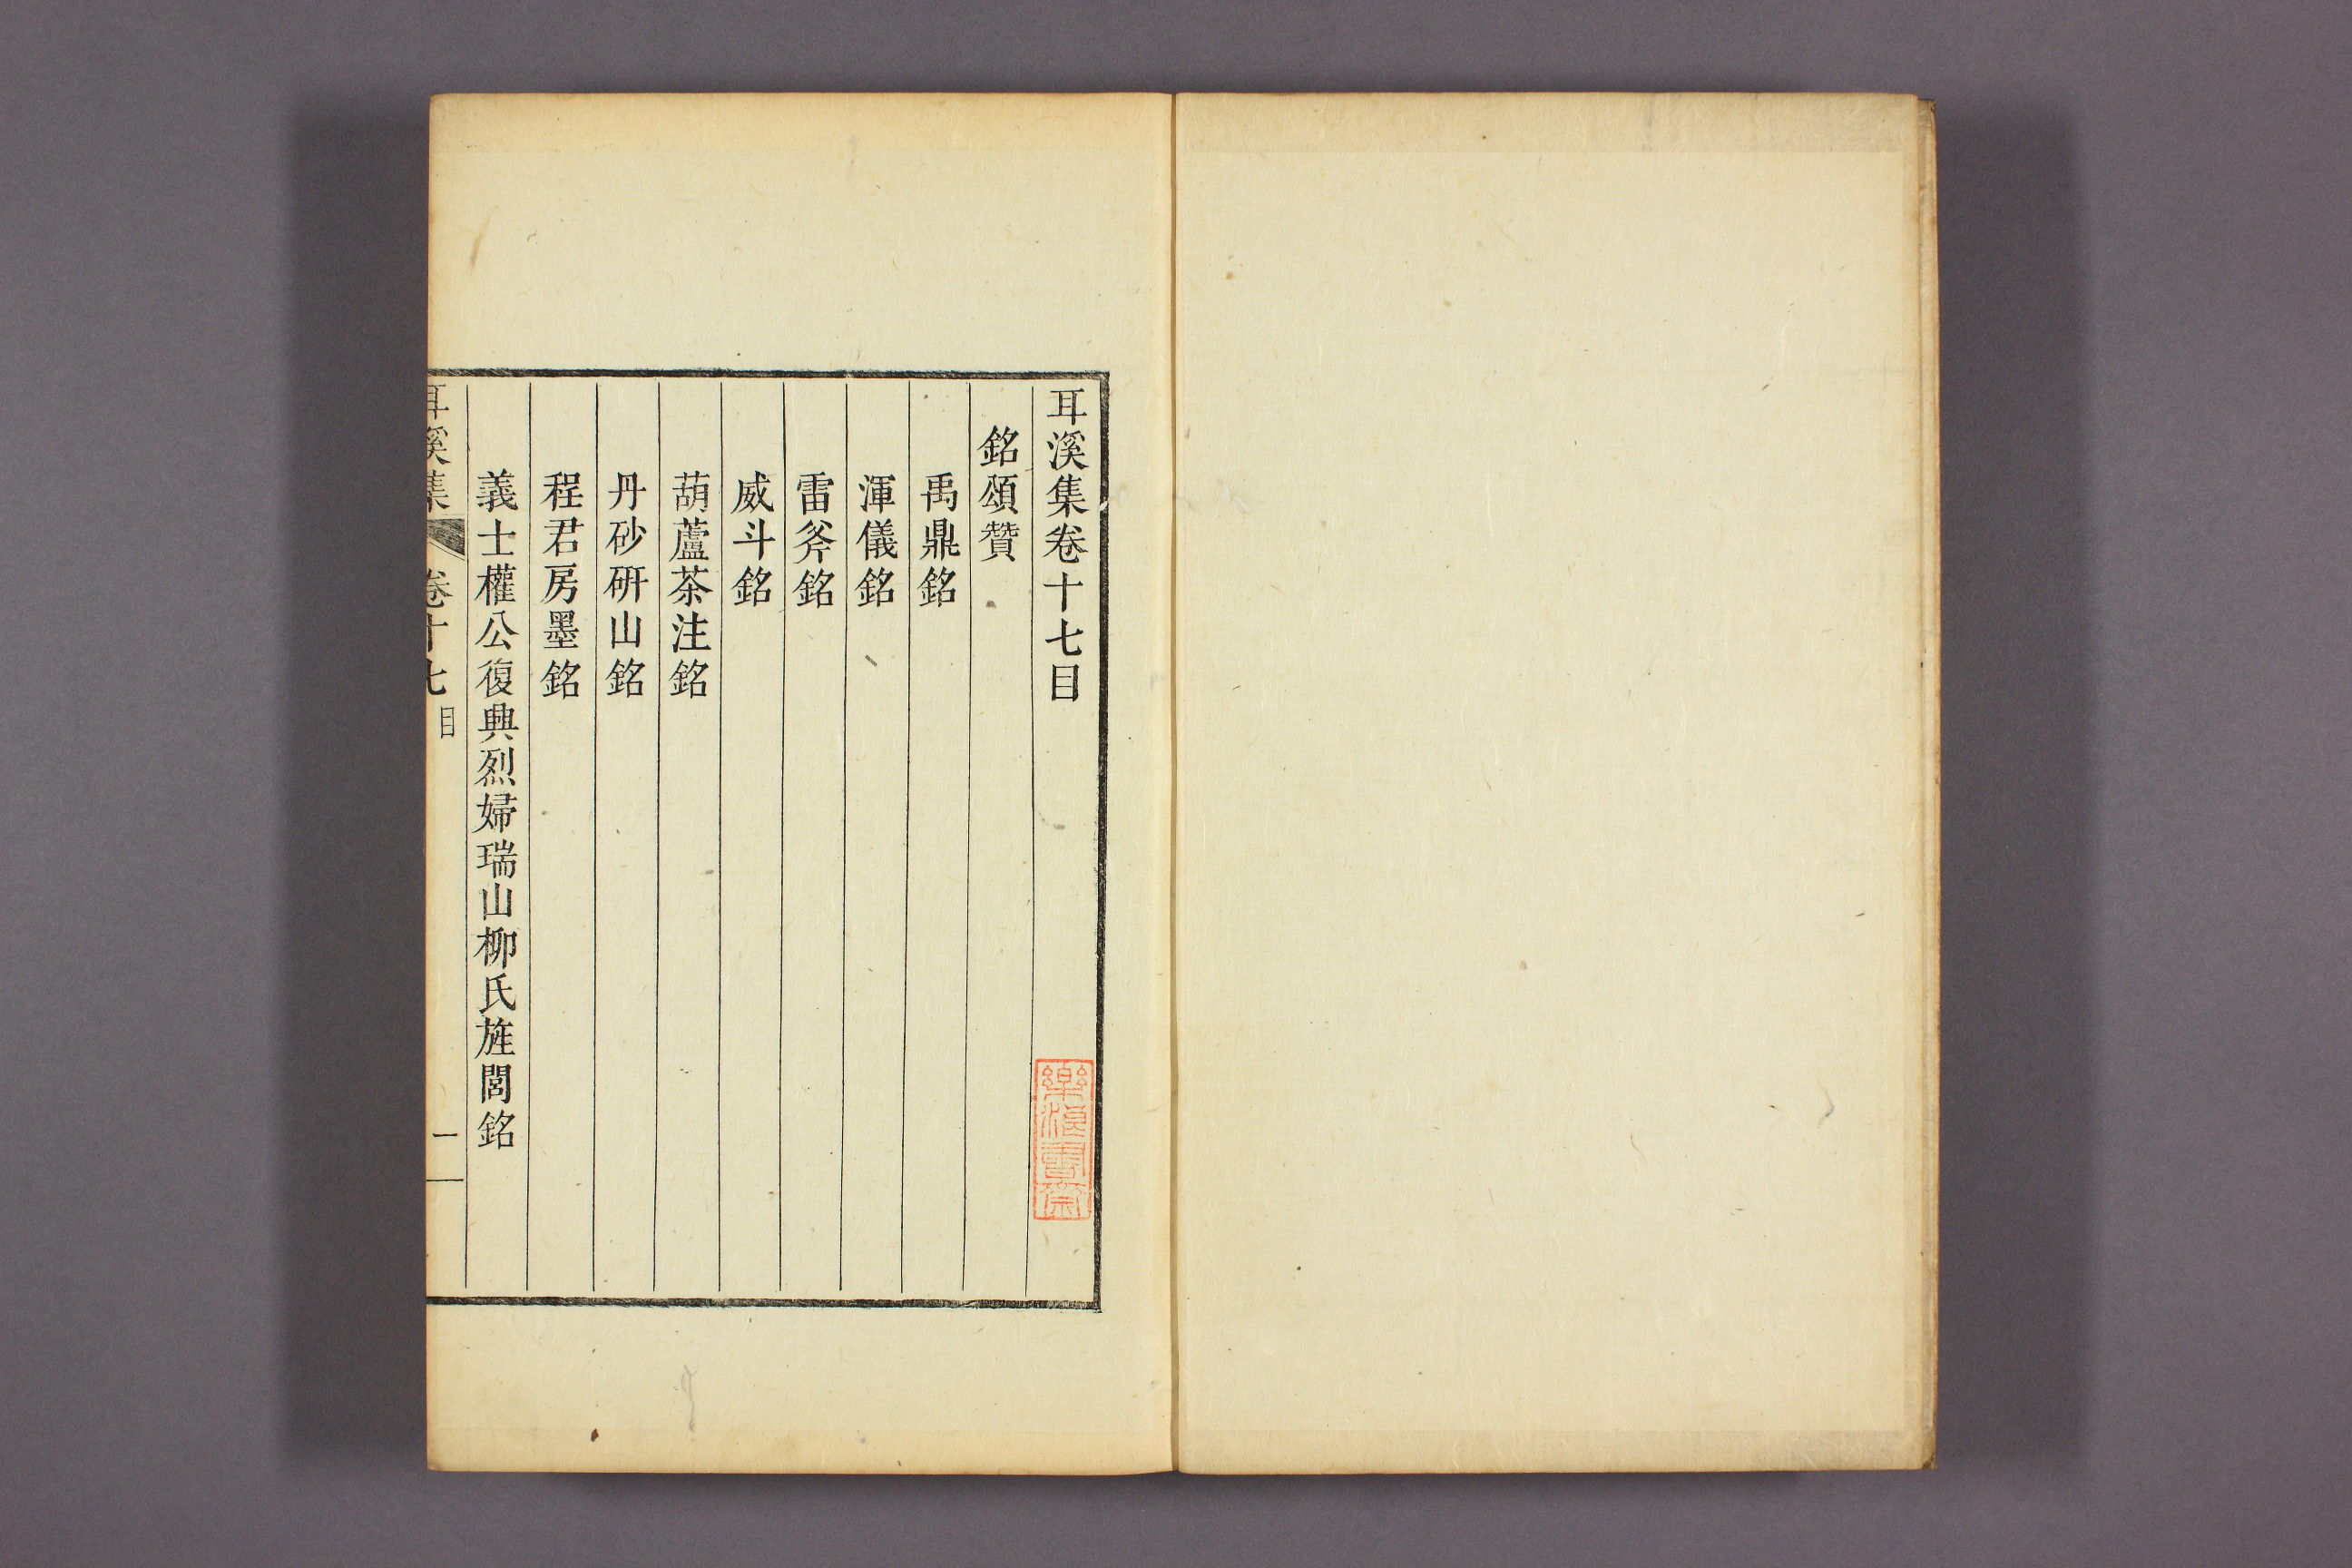 耳溪集卷十七目
銘頌贊
禹鼎銘
渾儀銘
雷斧銘
威斗銘
葫蘆茶注銘
丹砂硏山銘
程君房墨銘
義士權公復興烈婦瑞山柳氏旌閭銘
耳溪集 卷十七 目 一
樂浪書齋